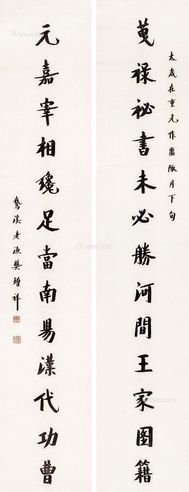 太歲在重光作噩陬月下旬
蒐祿祕書未必勝河間王家圖籍
元嘉宰相纔足當南昜漢代功曹
溪老漁樊增祥